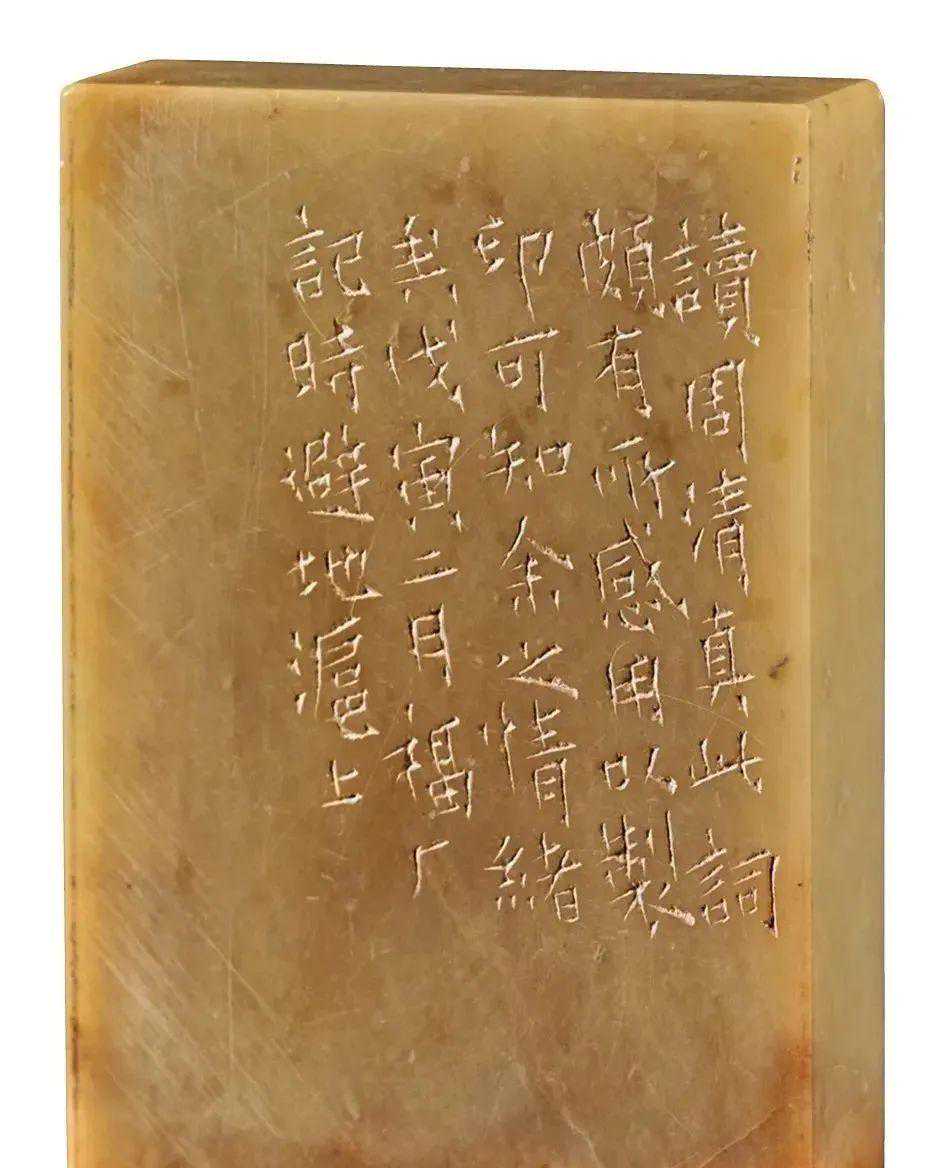 讀周清真此詞
頗有所感用以製
印可知余之情緒
矣戊寅二月福厂
記時避地滬上